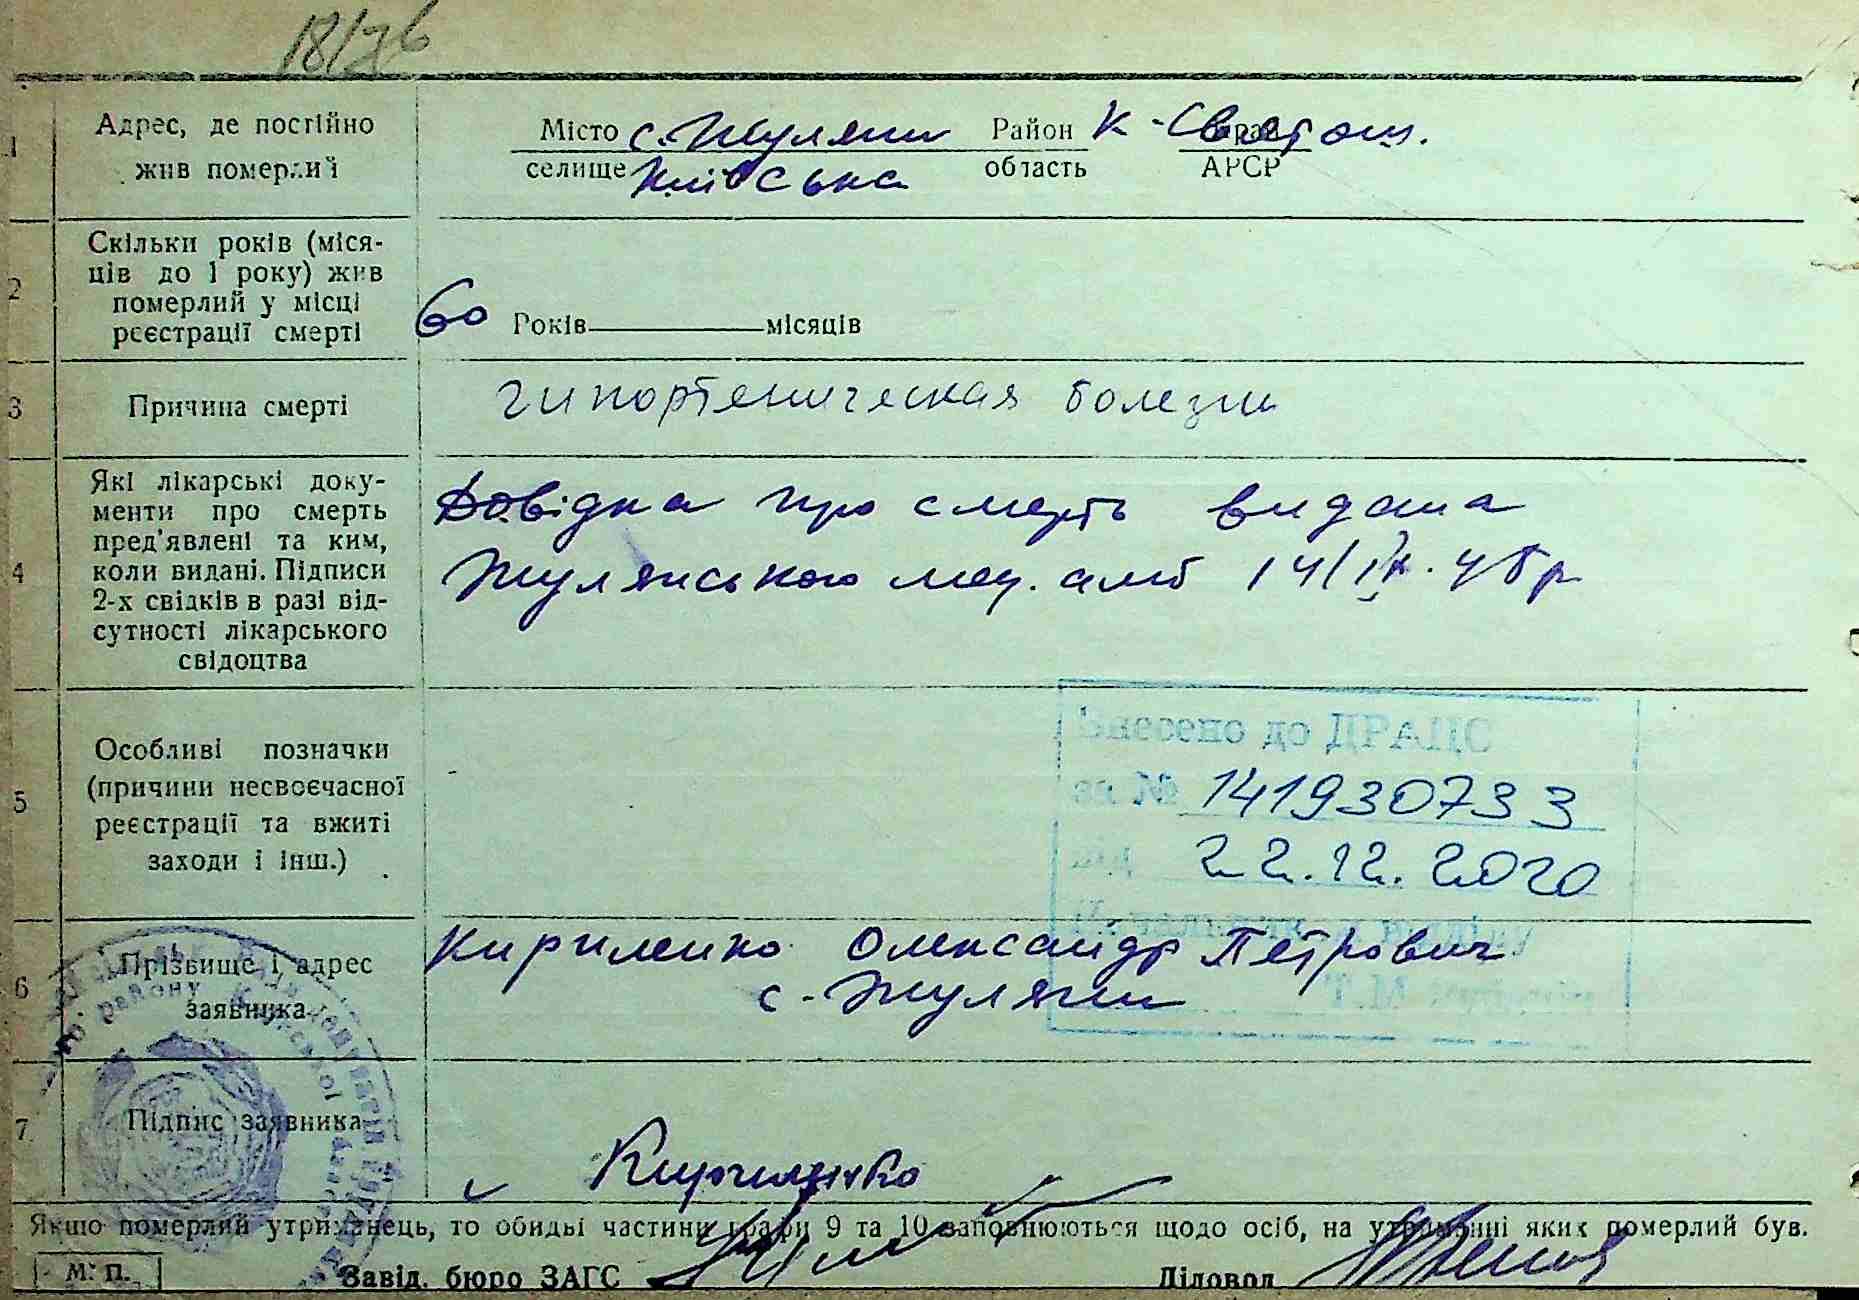 18/76
1 Адрес, де постійно жив померлий
Місто с. Жуляни Район К-Святош. край
селище Київська область АРСР
2 Скільки років (міся-
ців до 1 року) жив
померлий у місці
реєстрації смерті
60 Років місяців
3 Причина смерті
гипортеническая болезни
4 Які лікарські доку-
менти про смерть
пред'явлені та ким,
коли видані. Підписи
2-х свідків в разі від-
сутності лікарського
свідоцтва
Довідка про смерть видана
Жулянською мед. амб 14/IX.
5 Особливі позначки
(причини несвоєчасної
реєстрації та вжиті
заходи і інш.)
Внесено до ДРАЦС
за № 141930733
від 22.12.2020
6 Прізвище і адрес
заявника
Кириленко Олександр Петрович
с. Жуляни
7 Підпис заявника
Кириленко
Якщо померлий утриманець, то обидві частини графи 9 та 10 заповнюються щодо осіб, на утриманні яких померлий був.
М. П. Завід. бюро ЗАГС Діловод